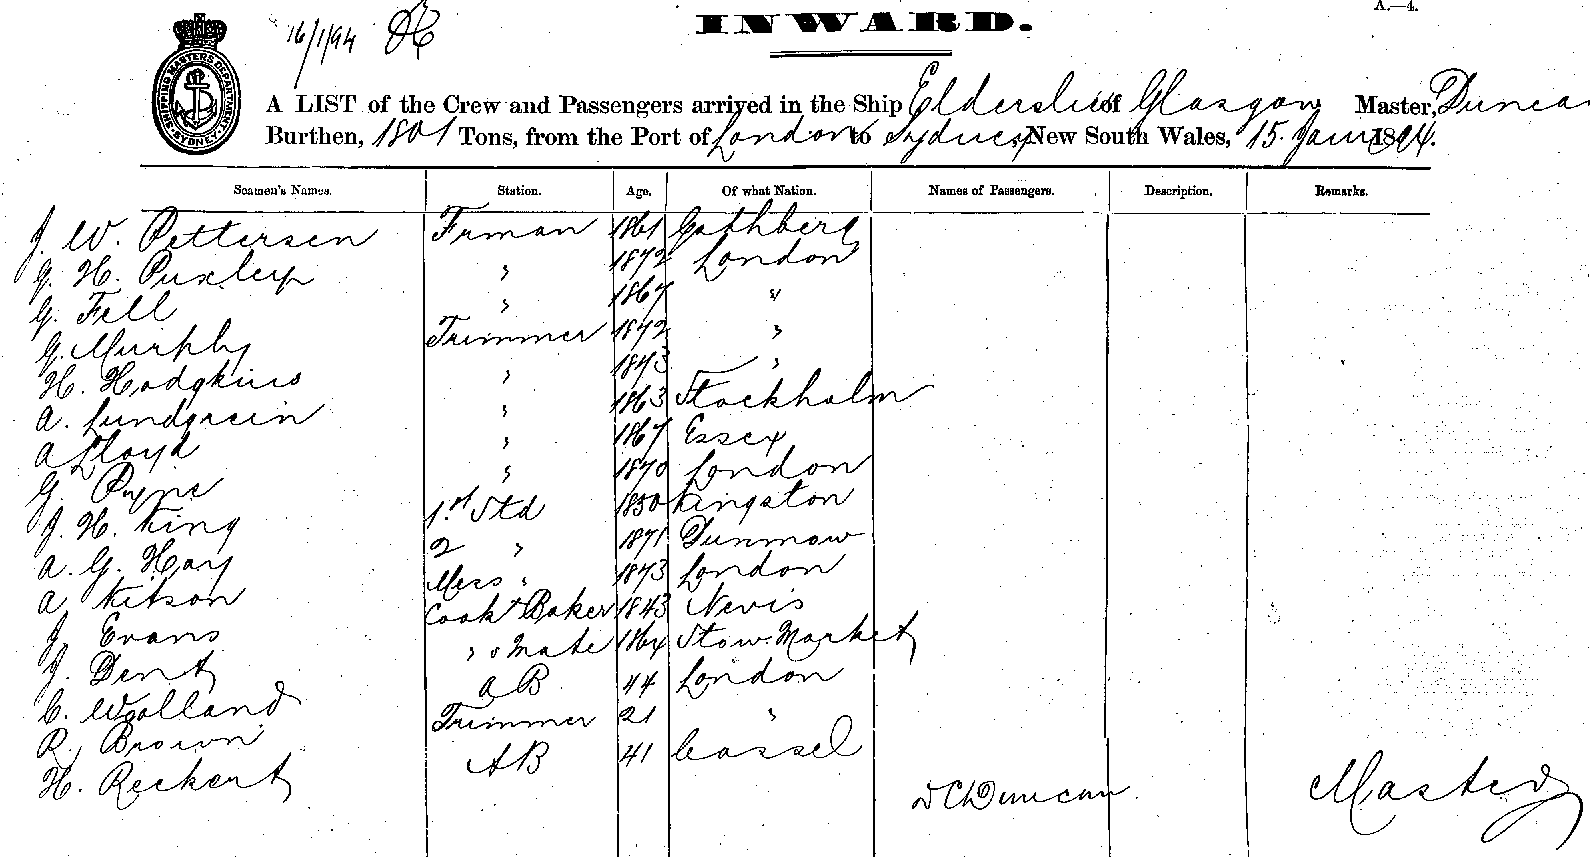 A.—4.
16/1/94
INWARD.
SHIPPING MASTERS DEPARTMENT SYDNEY
A LIST of the Crew and Passengers arrived in the Ship Elderslie of Glasgow Master, Duncan
Burthen, 1801 Tons, from the Port of London to Sydney New South Wales, 15. Jany 1894.
Seamen's Names. Station. Age. Of what Nation. Names of Passengers. Description. Remarks.
J. W. Pettersen Firman 1861 Gothberg
G. H. Puxley " 1872 London
G. Fell " 1867 "
G. Murphy Trimmer 1872 "
H. Hodgkins " 1873 "
A. Lundgrein " 1863 Stockholm
A Lloyd " 1867 Essex
G. Payne " 1870 London
J. H. King 1st Std 1850 Kingston
A. G. Hay 2 " 1871 Dunmow
A Kitson Mess " 1873 London
J Evans Cook & Baker 1843 Nevis
J. Dent " s Mate 1864 Stow Market
C. Woolland A B 44 London
R. Brown Trimmer 21 "
H. Reekert AB 41 Cassel
D C Duncan Master